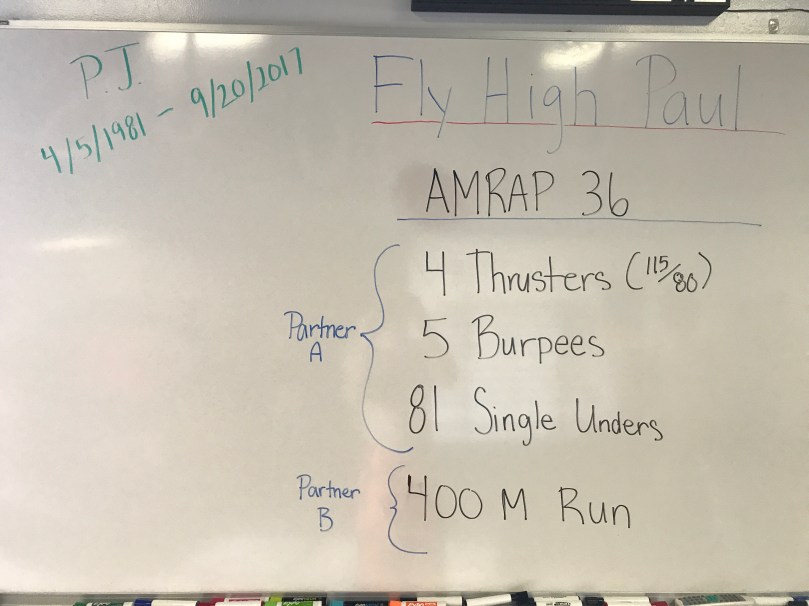 P.J.
4/5/1981 - 9/20/2017
Fly High Paul
AMRAP 36
4 Thrusters (115/80)
5 Burpees
81 Single Unders
Partner
A
400 M Run
Partner
B